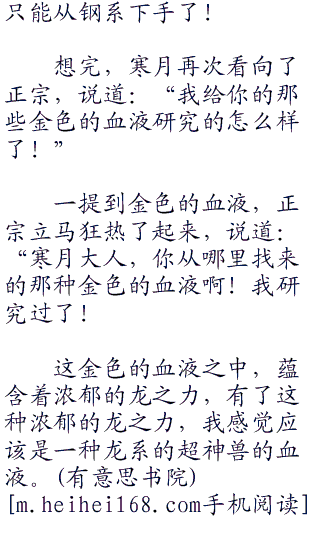 只能从钢系下手了！
想完，寒月再次看向了
正宗，说道：“我给你的那
些金色的血液研究的怎么样
了！”
一提到金色的血液，正
宗立马狂热了起来，说道：
“寒月大人，你从哪里找来
的那种金色的血液啊！我研
究过了！
这金色的血液之中，蕴
含着浓郁的龙之力，有了这
种浓郁的龙之力，我感觉应
该是一种龙系的超神兽的血
液。(有意思书院)
[m.heihei168.com手机阅读]